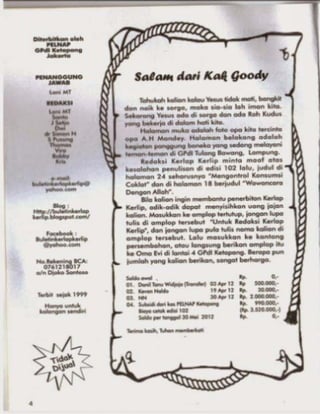 Diterbitkan oleh
PELNAP
GPdI Ketapang
Jakarta
PENANGGUNG
JAWAB
Loni MT
REDAKSI
Loni MT
Santo
J Setjo
Dwi
dr Simon N
S Pusung
Thomas
Vivo
Bobby
Kris
e-mail:
buletinkerlapkerlip@
yahoo.com
Blog :
http://buletinkerlap
kerlip.blogspot.com/
Facebook :
Buletinkerlapkerlip
@yahoo.com
No.Rekening BCA:
0761218017
a/n Djoko Santoso
Terbit sejak 1999
Hanya untuk
kalangan sendiri
Tidak
Dijual
4
Salam dari Kak Goody
Tahukah kalian kalau Yesus tidak mati, bangkit
dan naik ke sorga, maka sia-sia lah iman kita.
Sekarang Yesus ada di sorga dan ada Roh Kudus
yang bekerja di dalam hati kita.
Halaman muka adalah foto opa kita tercinta
opa A.H Mandey. Halaman belakang adalah
kegiatan panggung boneka yang sedang melayani
teman-teman di GPdI Tulang Bawang, Lampung.
Redaksi Kerlap Kerlip minta maaf atas
kesalahan penulisan di edisi 102 lalu, judul di
halaman 24 seharusnya "Mengontrol Konsumsi
Coklat" dan di halaman 18 berjudul "Wawancara
Dengan Allah".
Bila kalian ingin membantu penerbitan Kerlap
Kerlip, adik-adik dapat menyisihkan uang jajan
kalian. Masukkan ke amplop tertutup, jangan lupa
tulis di amplop tersebut "Untuk Redaksi Kerlap
Kerlip", dan jangan lupa pula tulis nama kalian di
amplop tersebut. Lalu masukkan ke kantong
persembahan, atau langsung berikan amplop itu
ke Oma Evi di lantai 4 GPdI Ketapang. Berapa pun
jumlah yang kalian berikan, sangat berharga.
Saldo awal Rp. 0,-
01. Danil Tanu Widjaja (transfer) 03 Apr 12 Rp 500.000,-
02. Keven Naldo 19 Apr 12 Rp. 30.000,-
03. NN 30 Apr 12 Rp. 2.000.000,-
04. Subsidi dari kas PELNAP Ketapang Rp. 990.000,-
Biaya cetak edisi 102 (Rp. 3.520.000,-)
Saldo per tanggal 30 Mei 2012 Rp. 0,-
Terima kasih, Tuhan memberkati